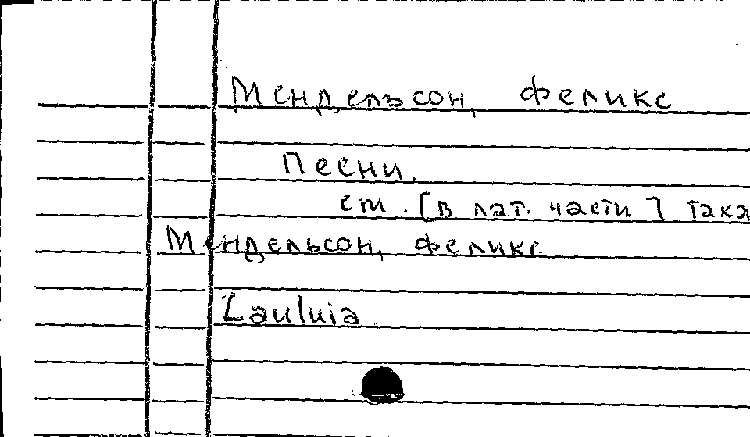 Мендельсон, Феликс
Песни.
см. [в лат. части] так
Мендельсон, Феликс
Lauluia